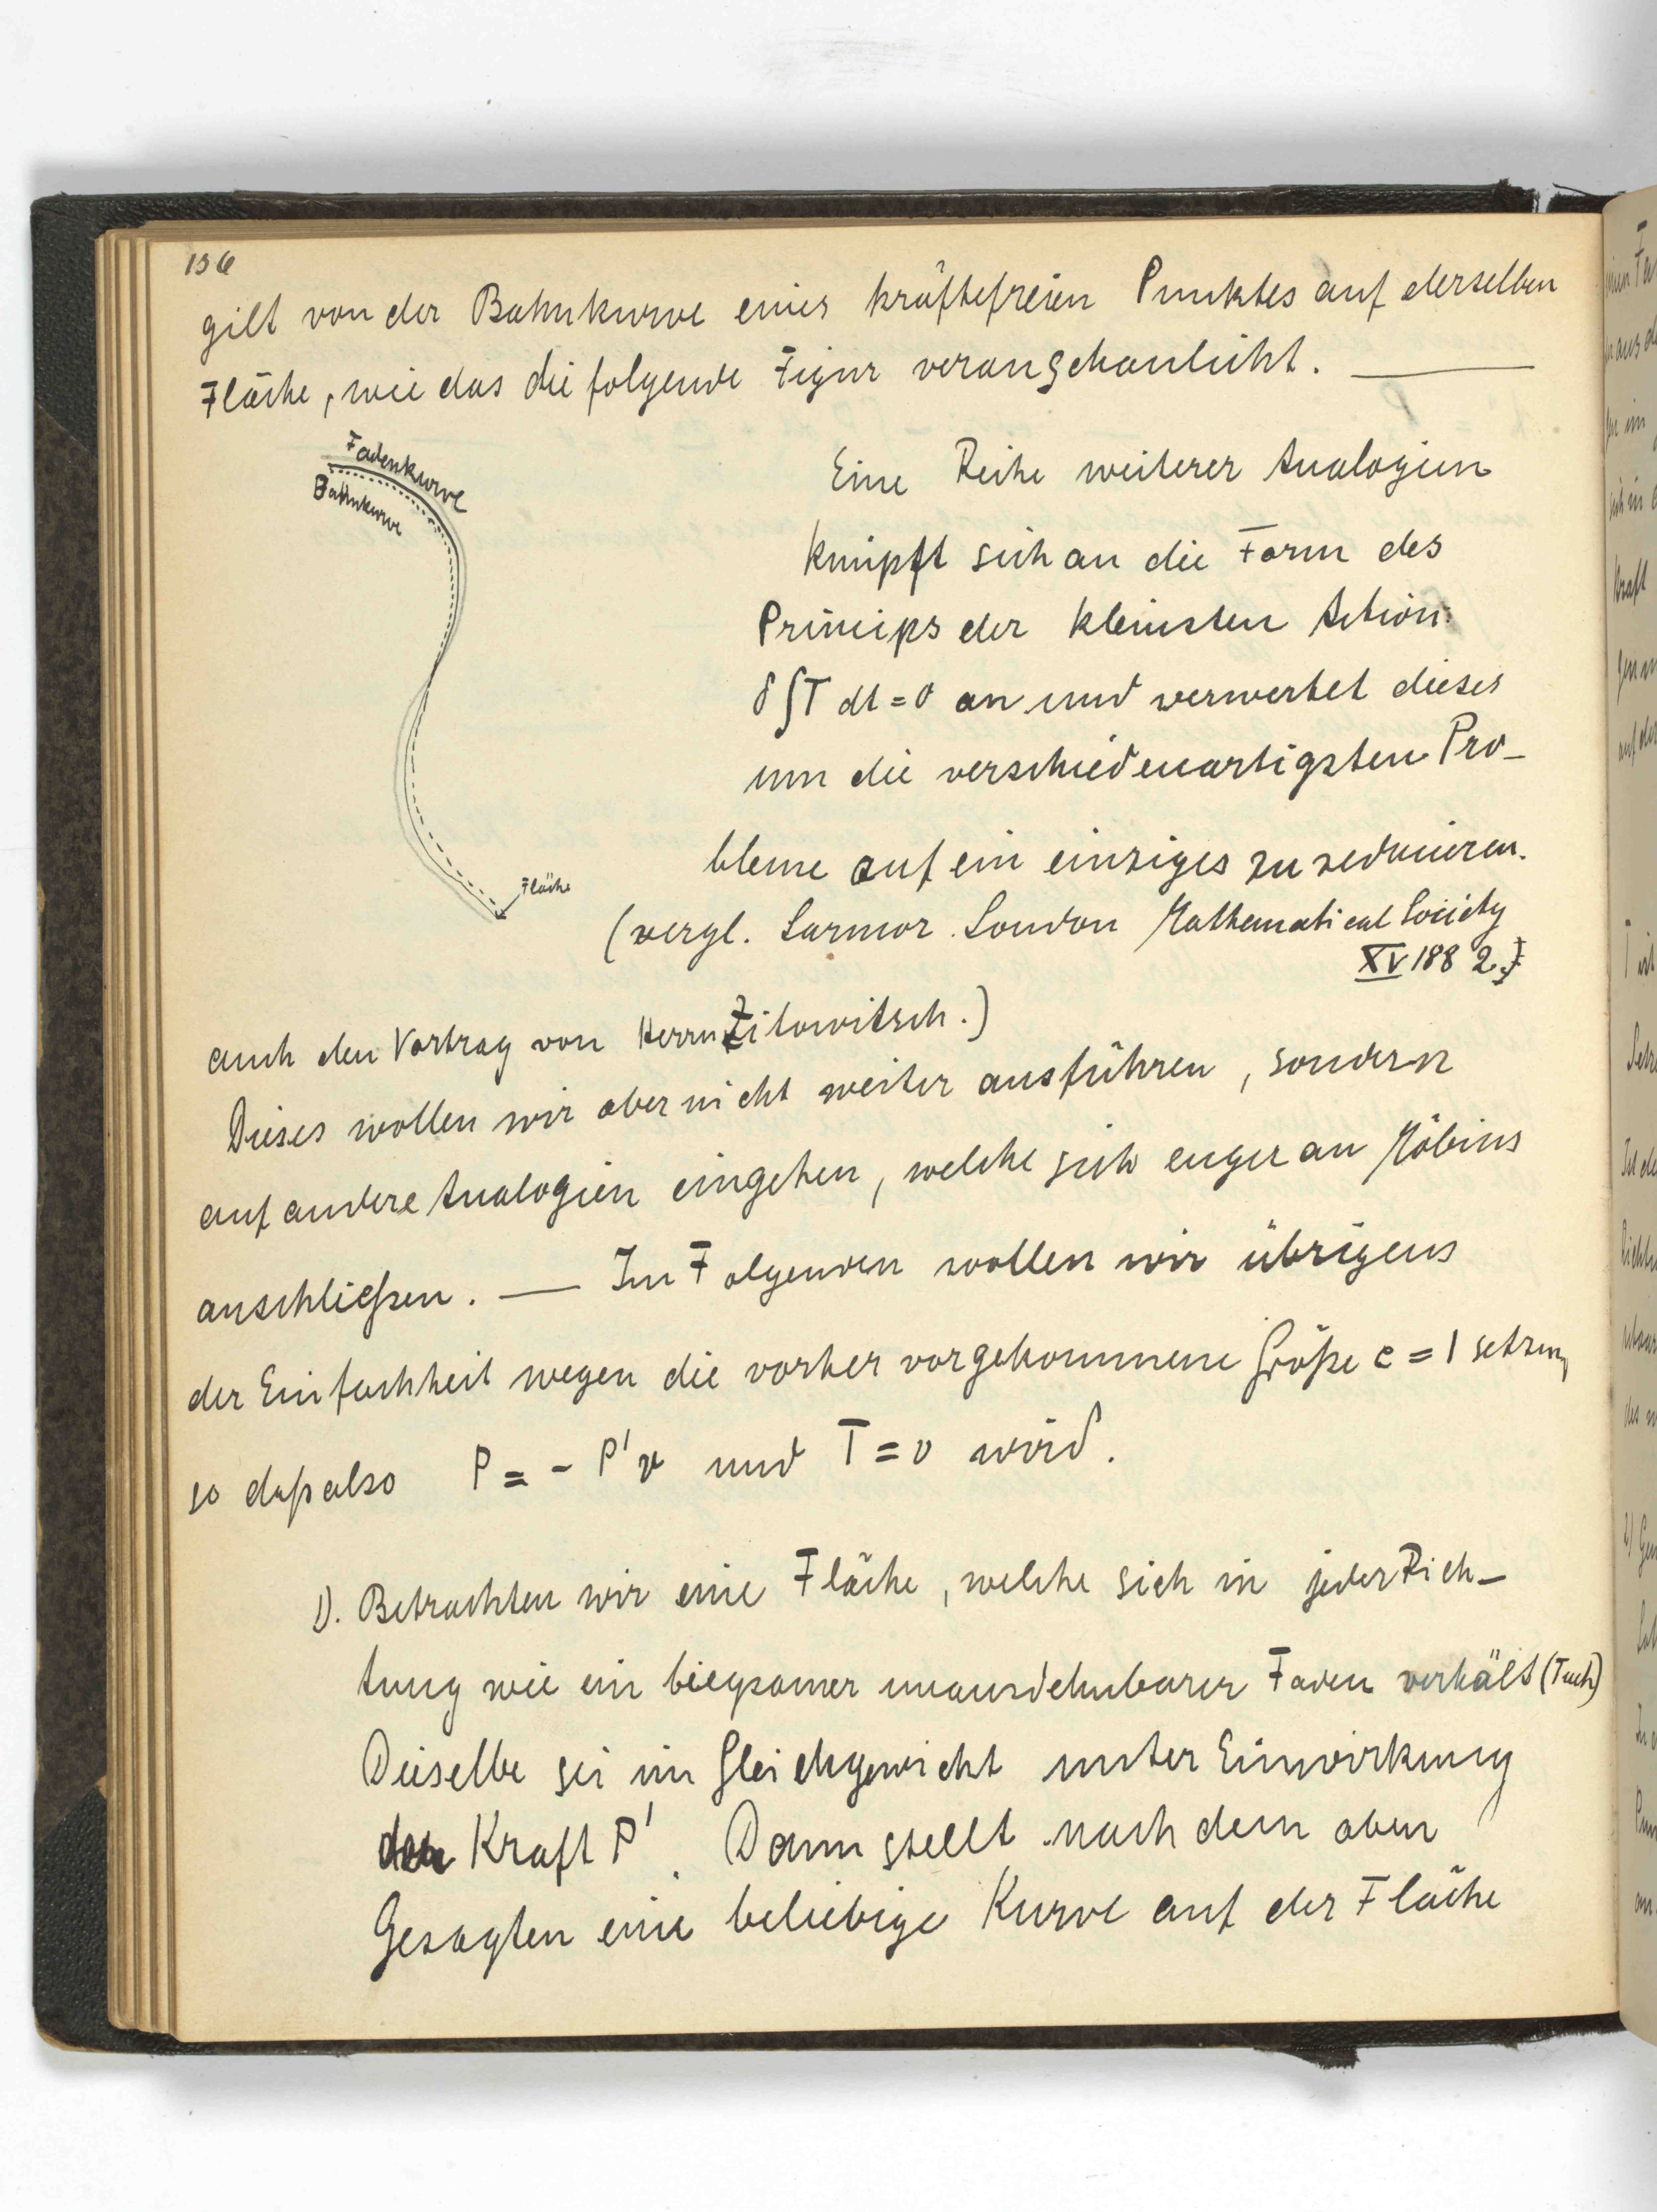 156
gilt von der Bahnkurve eines kräftefreien Punktes auf derselben
Fläche, wie das die folgende Figur veranschaulicht. —
Fadenkurve
Bahnkurve
Fläche
Eine Reihe weiterer Analogien
knüpft sich an die Form des
Princips der kleinsten Action:
δ∫T dt = 0 an und verwertet dieses
um die verschiedenartigsten Pro-
bleme auf ein einziges zu reducieren.
(vergl. Larmor. London Mathematical Society
XV 1882.)
auch den Vortrag von Herrn Zilowitsch.)
Dieses wollen wir aber nicht weiter ausführen, sondern
auf andere Analogien eingehen, welche sich enger an Möbius
anschließen. — Im Folgenden wollen wir übrigens
der Einfachheit wegen die vorher vorgekommene Größe c = 1 setzen,
so daß also P = - P'v und T = v wird.
1). Betrachten wir eine Fläche, welche sich in jeder Rich-
tung wie ein biegsamer unausdehnbarer Faden verhält (Tuch)
Dieselbe sei im Gleichgewicht unter Einwirkung
der Kraft P'. Dann stellt nach dem oben
Gesagten eine beliebige Kurve auf der Fläche